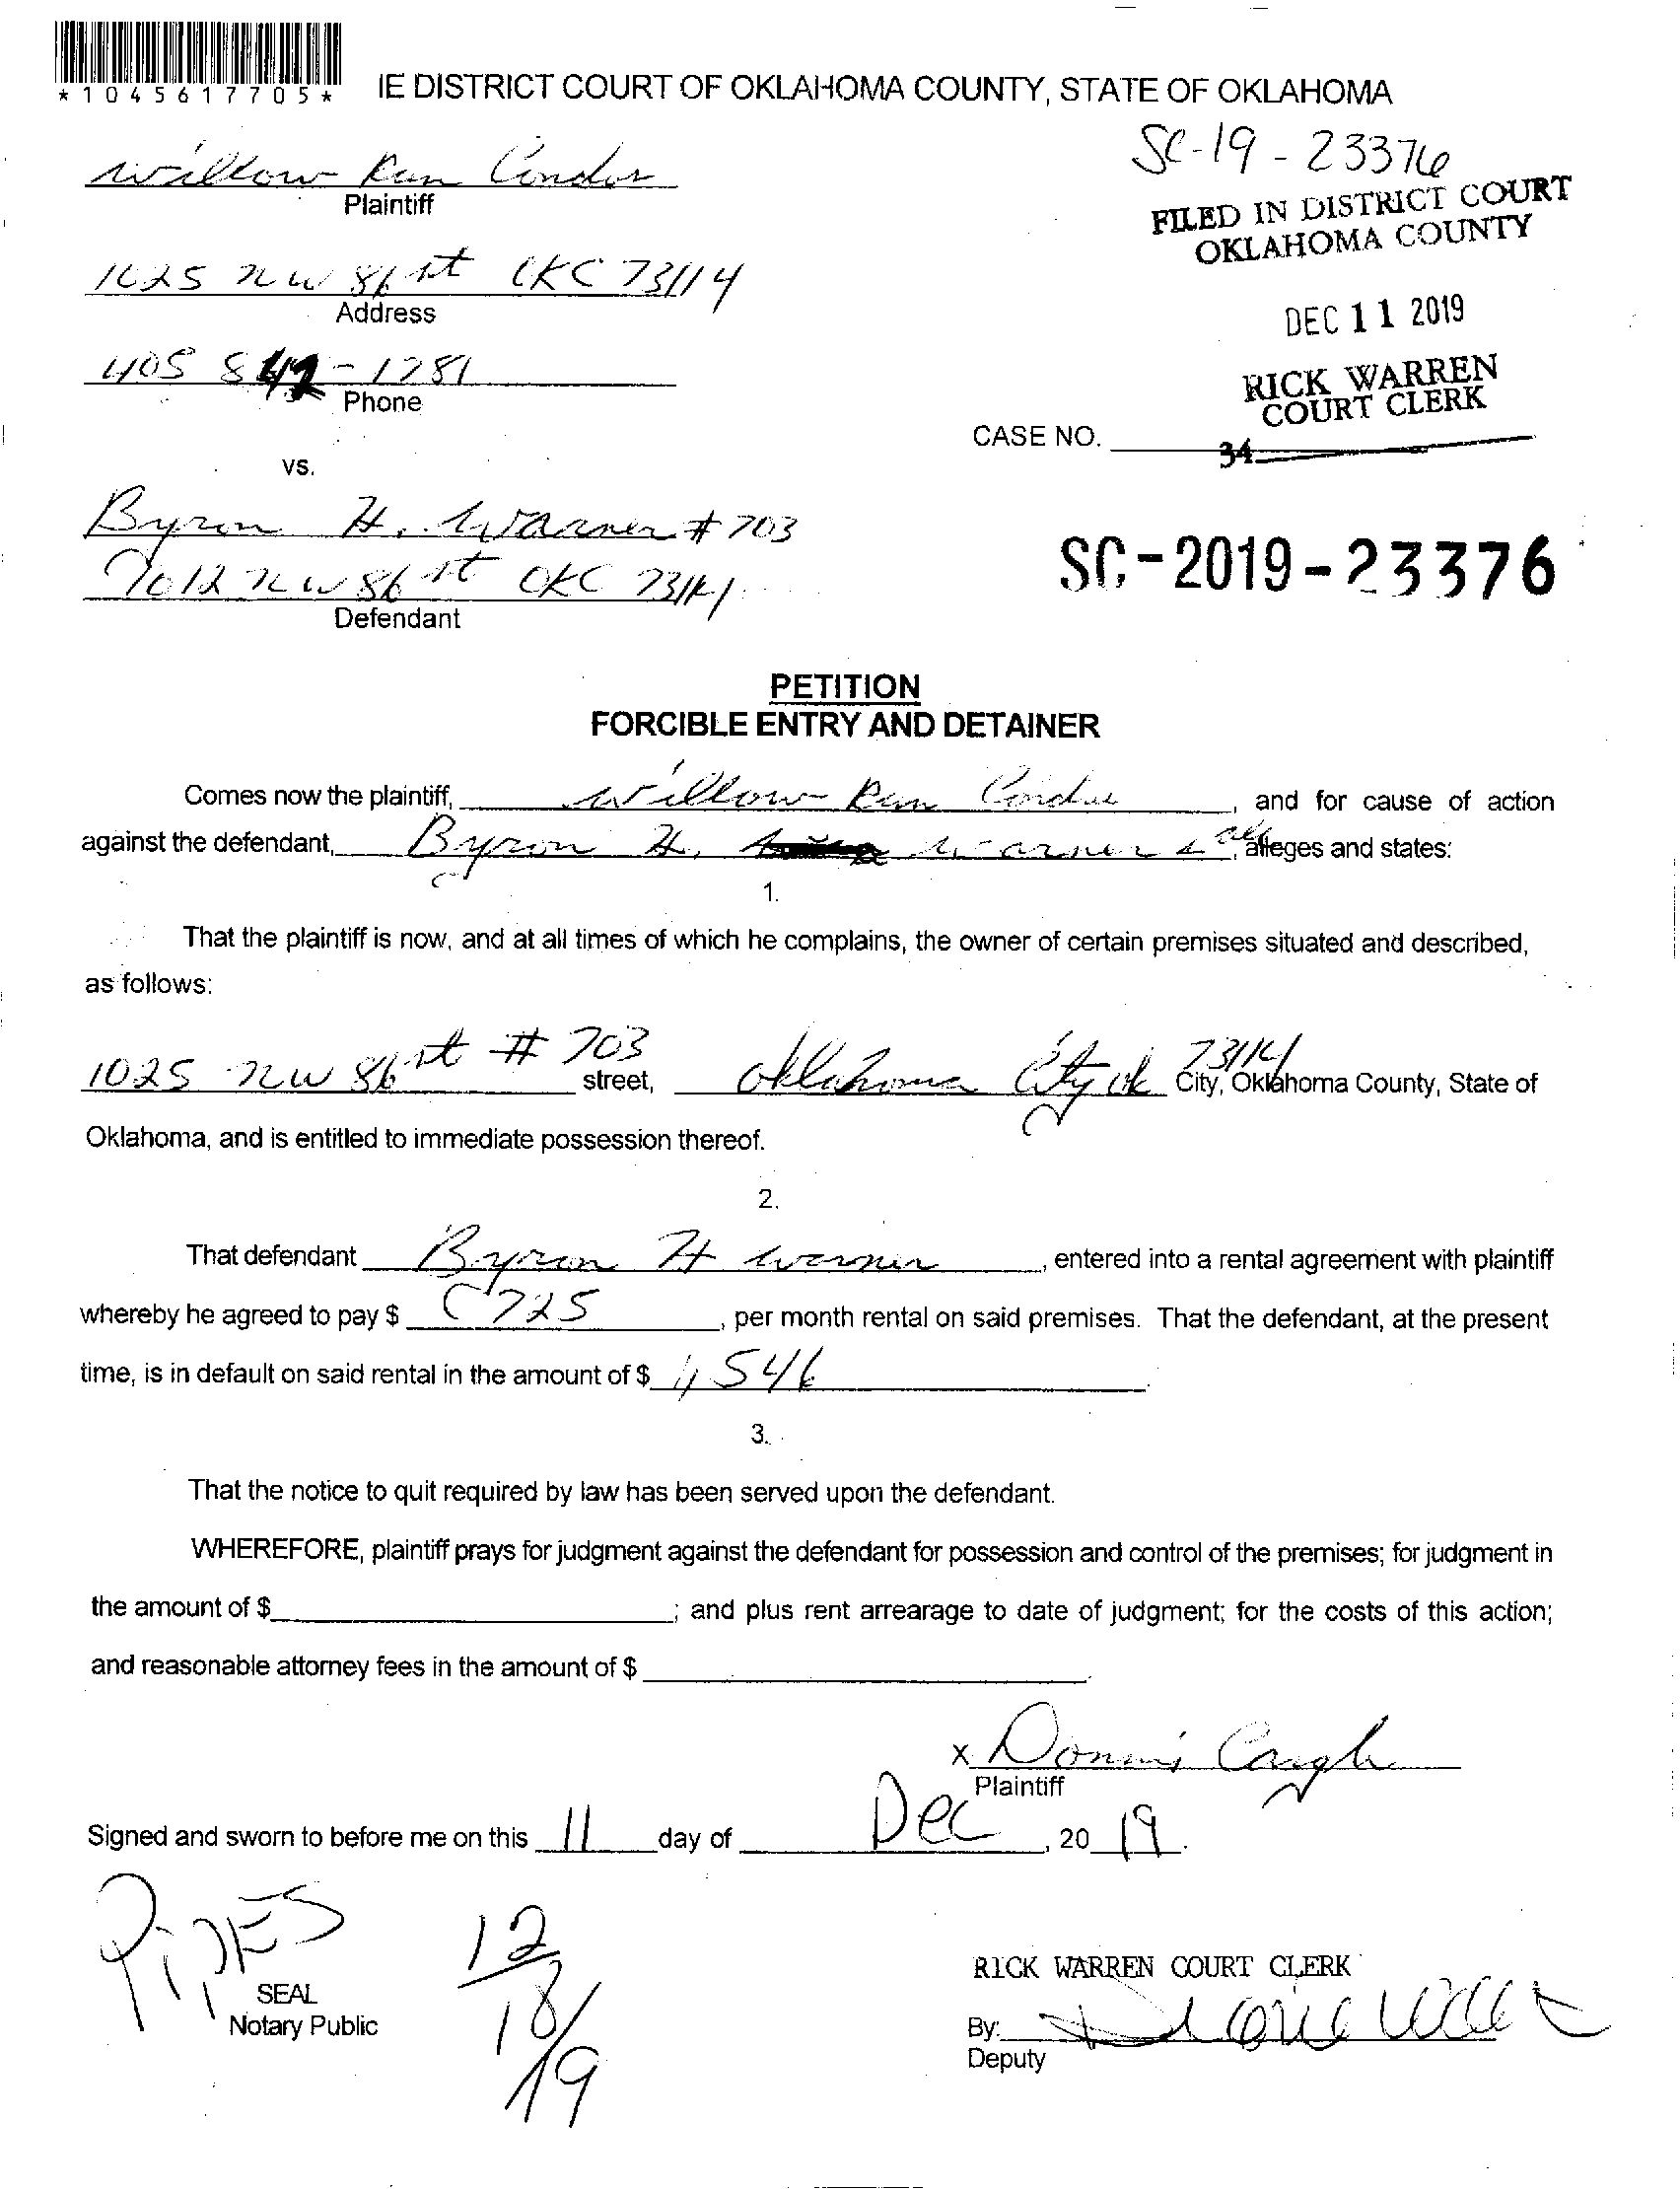 *1045617705*
IE DISTRICT COURT OF OKLAHOMA COUNTY, STATE OF OKLAHOMA
SC-19-23376
Willow Run Condos
Plaintiff
FILED IN DISTRICT COURT
OKLAHOMA COUNTY
1025 NW 86 st OKC 73114
Address
DEC 11 2019
405 842-1281
Phone
RICK WARREN
COURT CLERK
CASE NO.
34
vs.
Byron H. Warner #703
NW 86 st OKC 73114
Defendant
SC-2019-23376
PETITION
FORCIBLE ENTRY AND DETAINER
Comes now the plaintiff, Willow Run Condos, and for cause of action
against the defendant, Byron H. Warner & all, alleges and states:
1.
That the plaintiff is now, and at all times of which he complains, the owner of certain premises situated and described,
as follows:
1025 NW 86 st # 703 street, Oklahoma City ok 73114 City, Oklahoma County, State of
Oklahoma, and is entitled to immediate possession thereof.
2.
That defendant Byron H Warner, entered into a rental agreement with plaintiff
whereby he agreed to pay $ 725, per month rental on said premises. That the defendant, at the present
time, is in default on said rental in the amount of $ 1,546.
3.
That the notice to quit required by law has been served upon the defendant.
WHEREFORE, plaintiff prays for judgment against the defendant for possession and control of the premises; for judgment in
the amount of $ ; and plus rent arrearage to date of judgment; for the costs of this action;
and reasonable attorney fees in the amount of $ .
x Donnis
Plaintiff
Signed and sworn to before me on this 11 day of Dec, 20 19.
PIPES
12/18/19
SEAL
Notary Public
RICK WARREN COURT CLERK
By:
Deputy